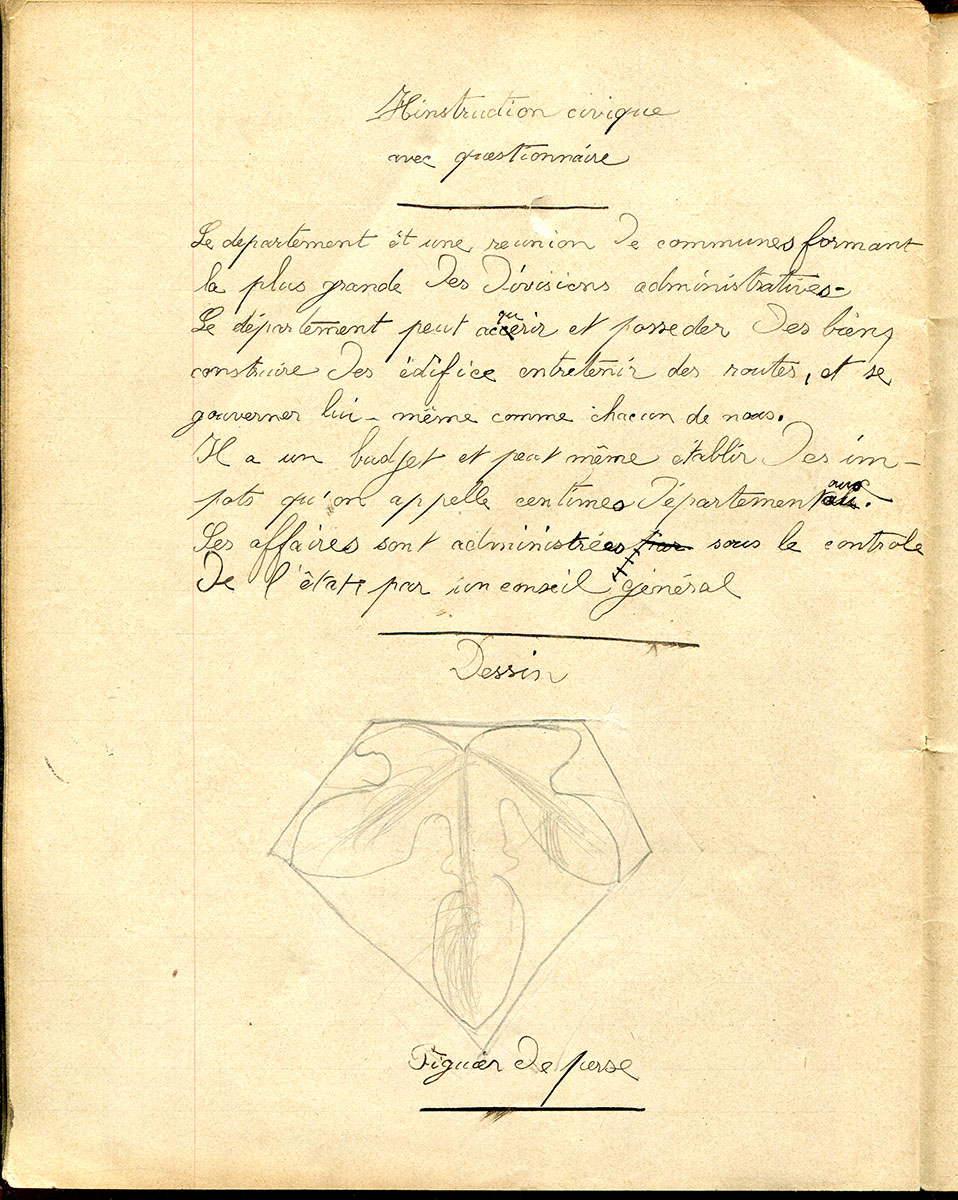 Hinstruction civique
avec questionnaire
Le departement êt une reunion de communes formant
la plus grande des divisions administratives-
Le département peut accérir qu et posseder des biens
construire des édifice entretenir des routes, et se
gouverner lui-même comme chacun de nous.
Il a un budjet et peut même établir des im-
pots qu'on appelle centimes départementaux.
Ses affaires sont administrées par sous le controle
de l'état par un conseil général
Dessin
Figuier de perse